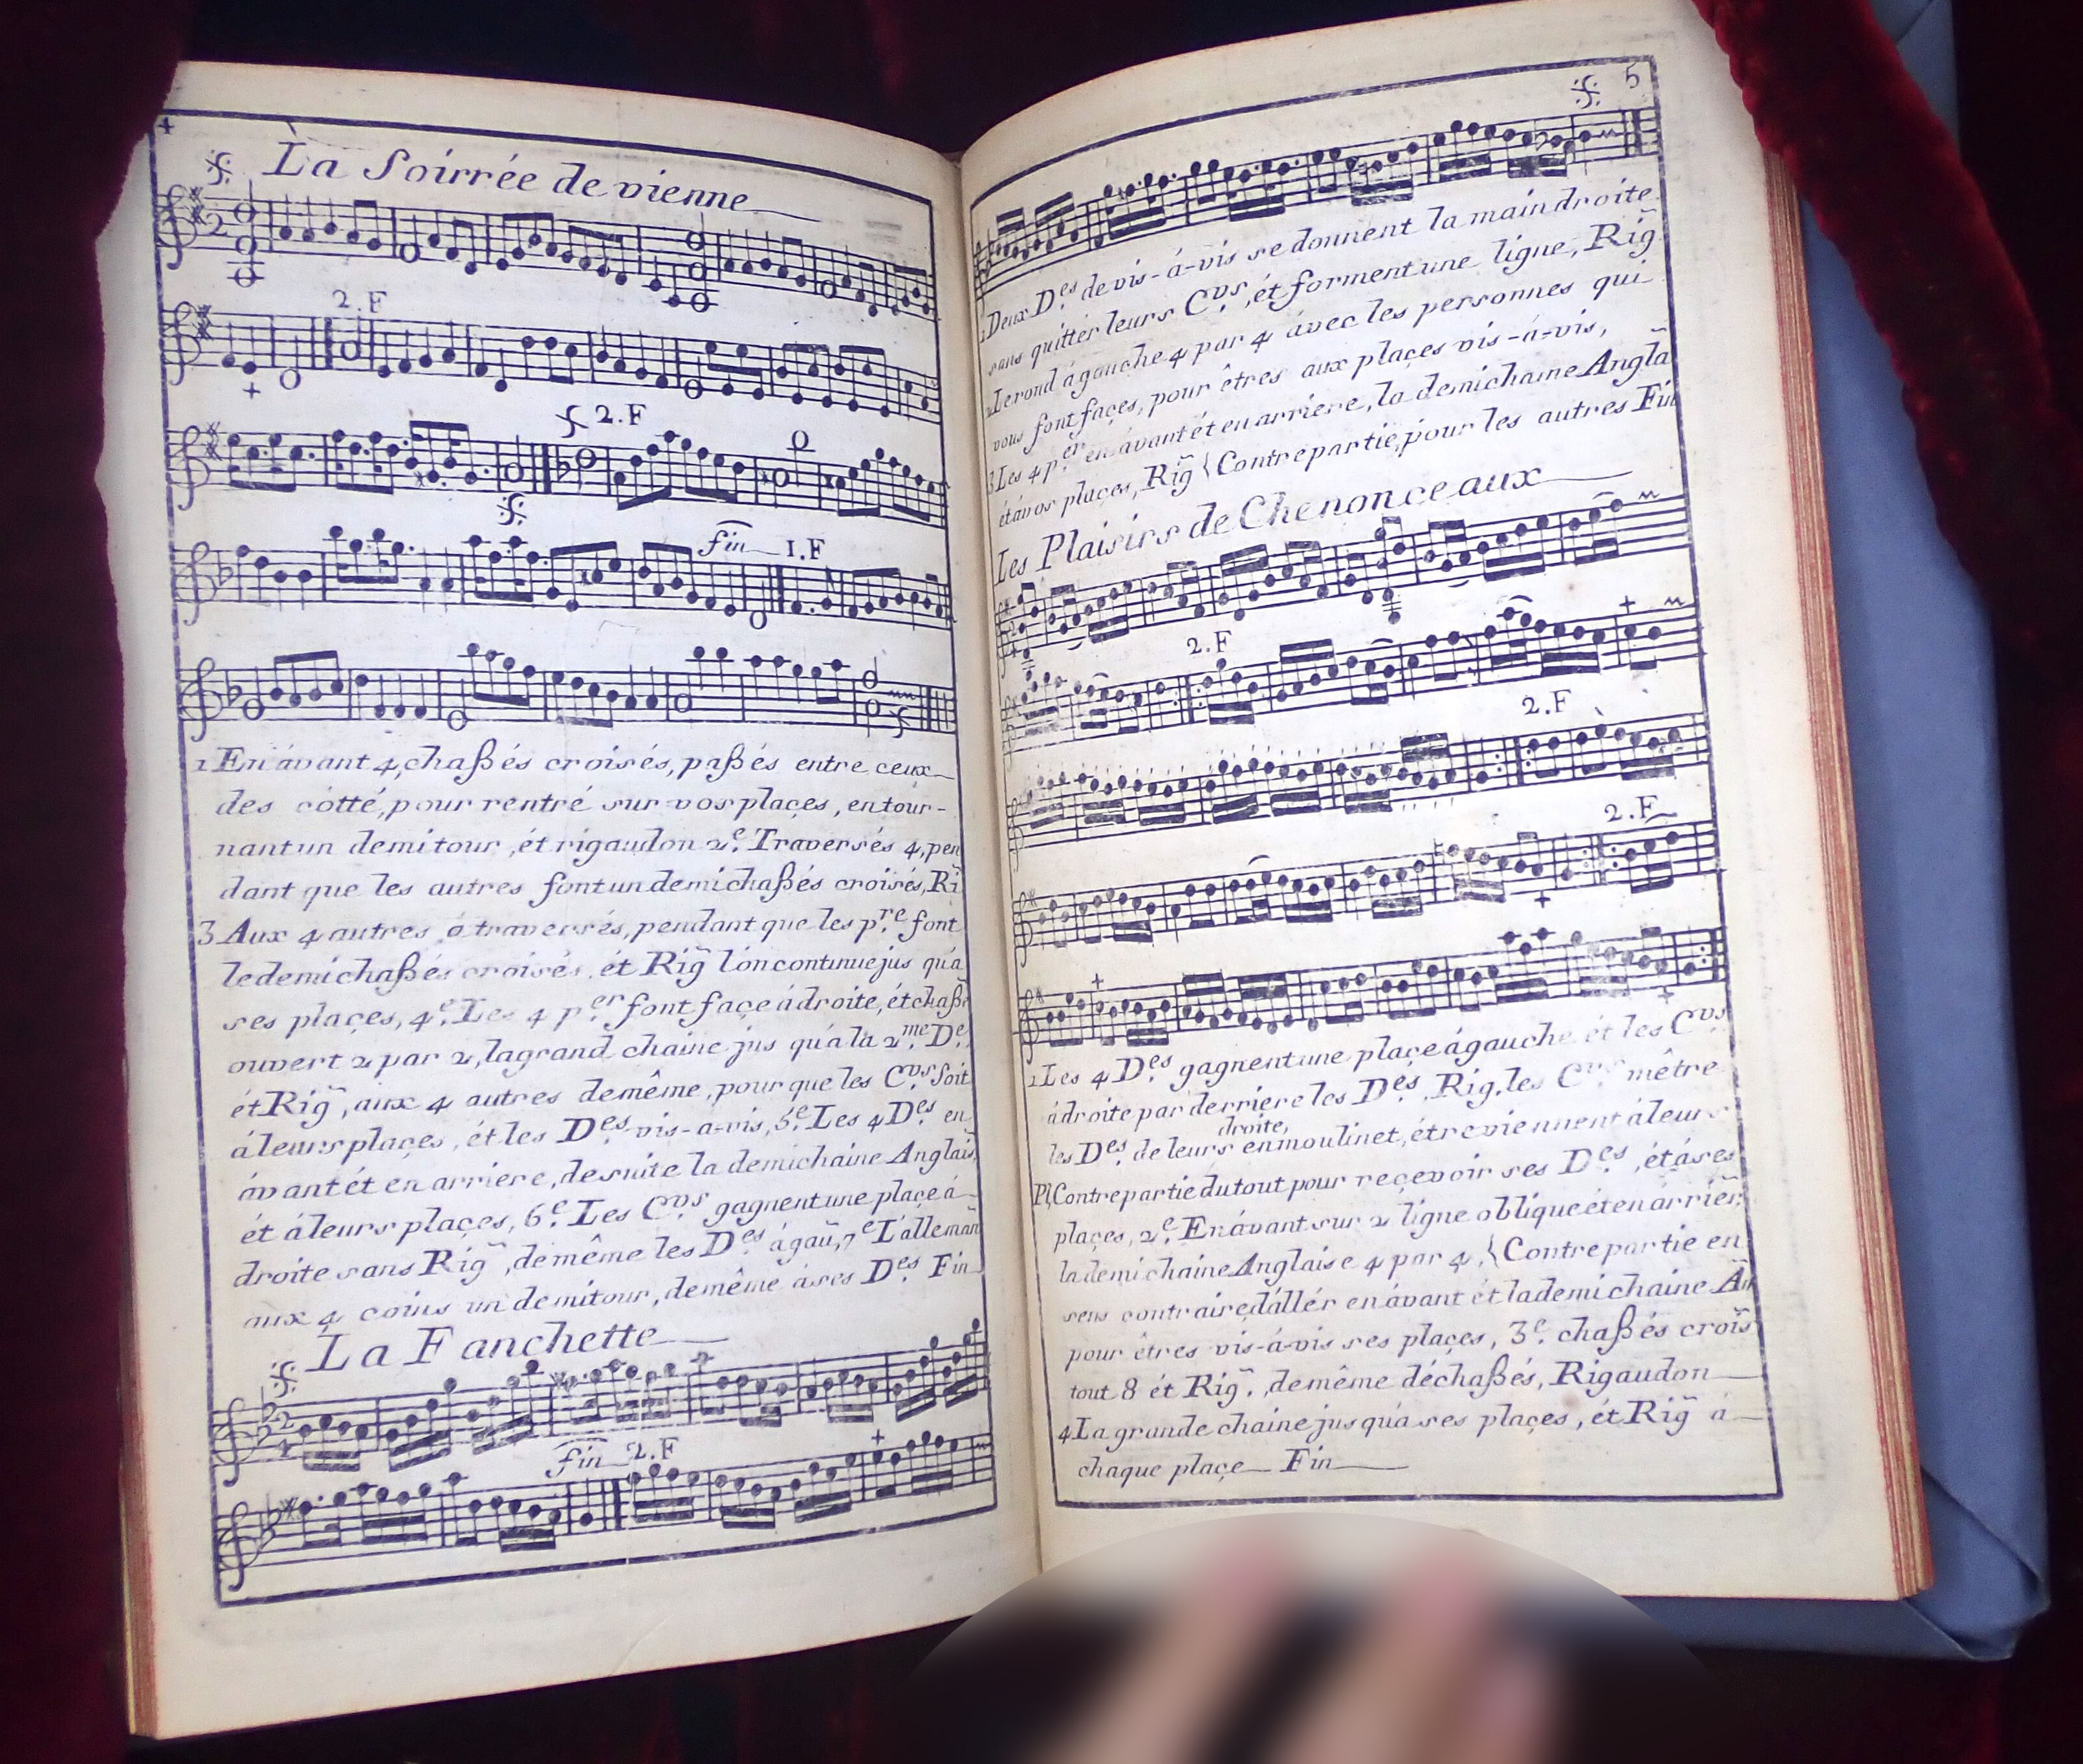 La Soirrée de vienne
2.F
2.F
fin 1.F
1 En ávant 4, chaßés croisés, paßés entre ceux
des cótté, pour rentré sur vos plaçes, en tour-
nant un demi tour, ét rigaudon 2e. Traversés 4, pen
dant que les autres font un demi chaßés croisés, Ri
3 Aux 4 autres á traversés, pendant que les pre. font
le demi chaßés croisés, ét Rig̃ lón continue jus qúa
ses plaçes, 4e. Les 4 per. font façe á droite, ét chaßé
ouvert 2 par 2, la grand chaine jus qúá la 2me. De.
ét Rig̃, aux 4 autres de même, pour que les Cvs. soit
á leurs plaçes, ét les Des. vis-a-vis, 5e. Les 4 Des. en
ávant ét en arriere, de suite la demi chaine Anglais
ét á leurs plaçes, 6e. Les Cvs. gagnent une plaçe á
droite sans Rig̃, de même les Des. á gaũ, 7e. L'alleman
aux 4 coins un demi tour, de même á ses Des. Fin
La Fanchette
2
4
fin 2.F
5
1 Deux Des. de vis-á-vis se donnent la main droite
sans quittér leurs Cvs., ét forment une ligne, Rig̃
2 Le rond á gauche 4 par 4 ávec les personnes qui
vous font façes, pour êtres aux plaçes vis-á-vis,
3 Les 4 per. en ávant ét en arriere, la demi chaine Angla
ét á vos plaçes, Rig̃ { Contre partie, pour les autres Fin
Les Plaisirs de Chenonceaux
2.F
2.F
2.F
1 Les 4 Des. gagnent une plaçe á gauche ét les Cvs.
á droite par derriere les Des. Rig. les Cvs. mêtre
droite,
les Des. de leurs en moulinet, ét reviennent á leurs
Pl, Contre partie du tout pour reçevoir ses Des., ét á ses
plaçes, 2e. En ávant sur 2 ligne oblique ét en árriér,
la demi chaine Anglaise 4 par 4, { Contre partie en
sens contraire d'állér en ávant ét la demi chaine An
pour êtres vis-á-vis ses plaçes, 3e. chaßés crois
tout 8 ét Rig̃., de même déchaßés, Rigaudon
4 La grande chaine jus qúa ses plaçes, ét Rig̃ á
chaque plaçe Fin